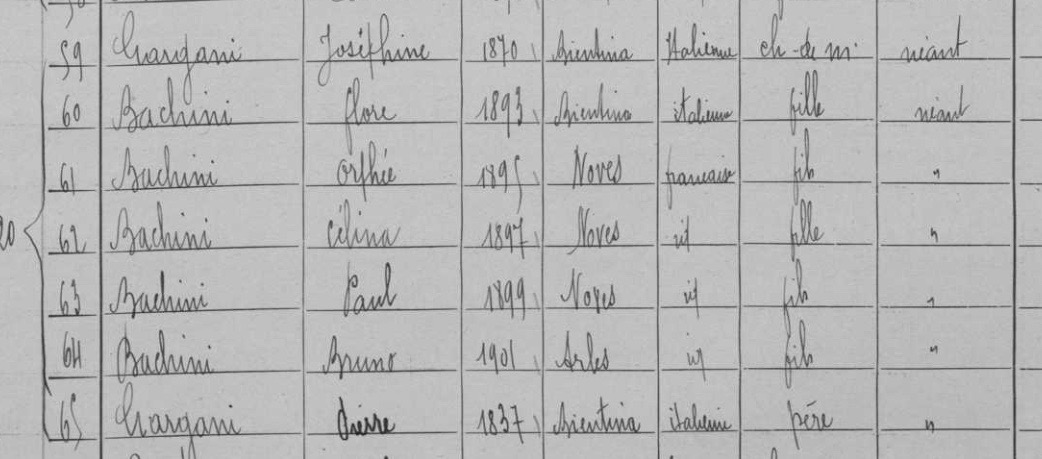 59 Gargani Joséphine 1870 Bientina Italienne ch-de m. néant
60 Bachini flore 1893 Bientina italienne fille néant
61 Bachini Orphée 1895 Noves française fils "
20 62 Bachini Célina 1897 Noves id fille "
63 Bachini Paul 1899 Noves id fils "
64 Bachini Bruno 1901 Arles id fils "
65 Gargani Pierre 1837 Bientina italienne père "